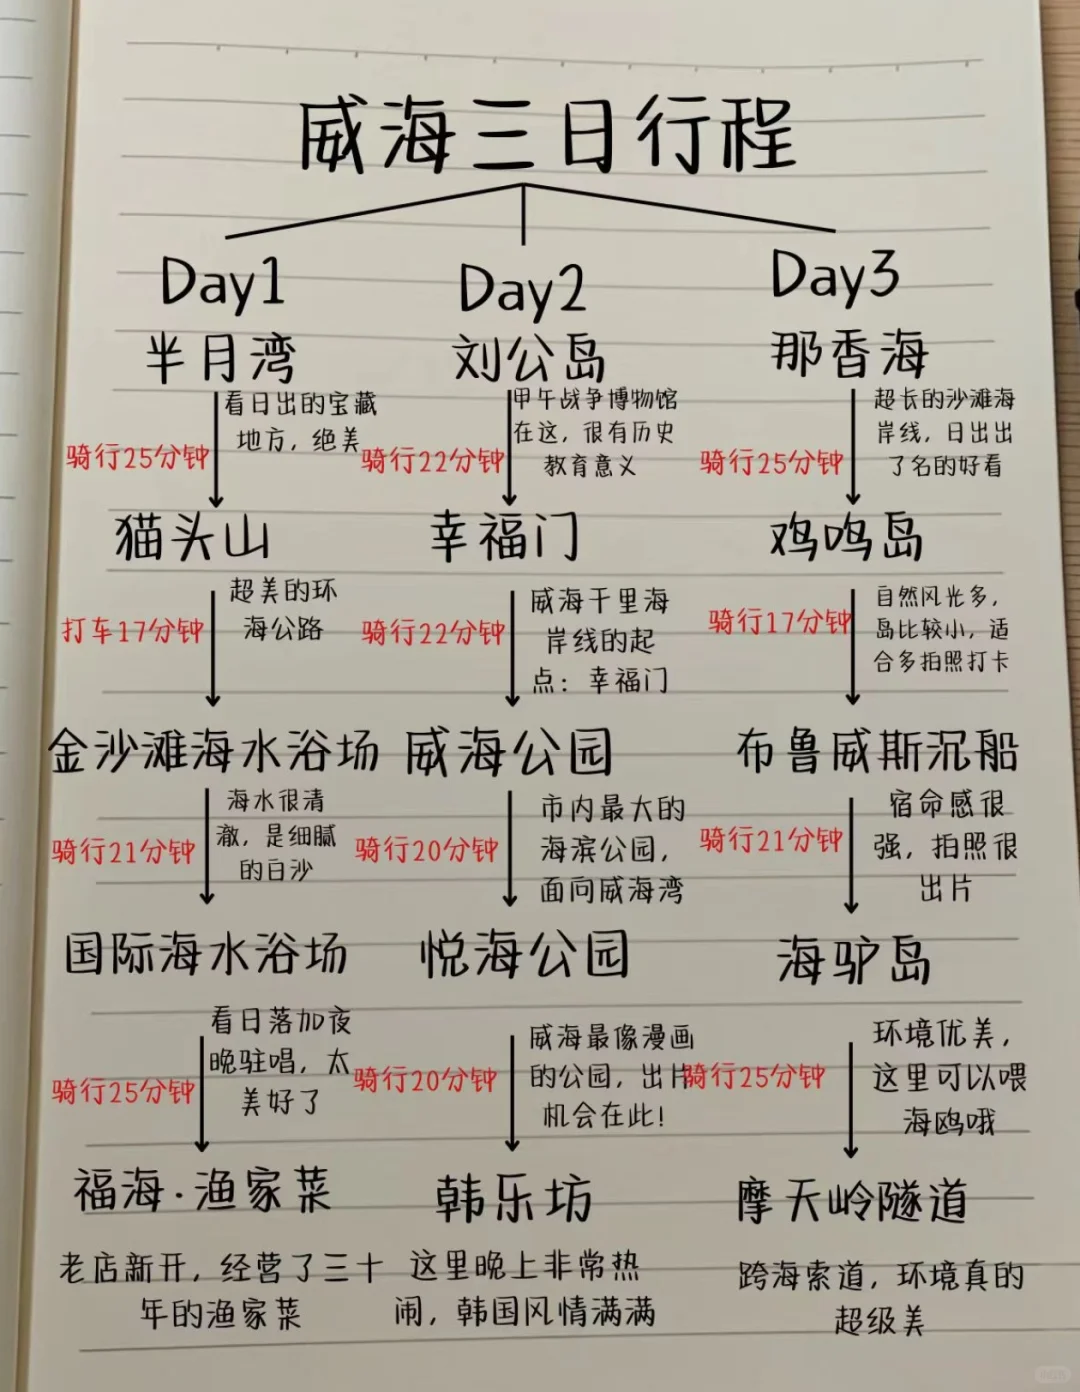 威海三日行程
Day1
半月湾
看日出的宝藏
地方，绝美
骑行25分钟
猫头山
超美的环
海公路
打车17分钟
金沙滩海水浴场
海水很清
澈，是细腻
的白沙
骑行21分钟
国际海水浴场
看日落加夜
晚驻唱，太
美好了
骑行25分钟
福海·渔家菜
老店新开，经营了三十
年的渔家菜
Day2
刘公岛
甲午战争博物馆
在这，很有历史
教育意义
骑行22分钟
幸福门
威海千里海
岸线的起
点：幸福门
骑行22分钟
威海公园
市内最大的
海滨公园，
面向威海湾
骑行20分钟
悦海公园
威海最像漫画
的公园，出片
机会在此！
骑行20分钟
韩乐坊
这里晚上非常热
闹，韩国风情满满
Day3
那香海
超长的沙滩海
岸线，日出出
了名的好看
骑行25分钟
鸡鸣岛
自然风光多，
岛比较小，适
合多拍照打卡
骑行17分钟
布鲁威斯沉船
宿命感很
强，拍照很
出片
骑行21分钟
海驴岛
环境优美，
这里可以喂
海鸥哦
骑行25分钟
摩天岭隧道
跨海索道，环境真的
超级美